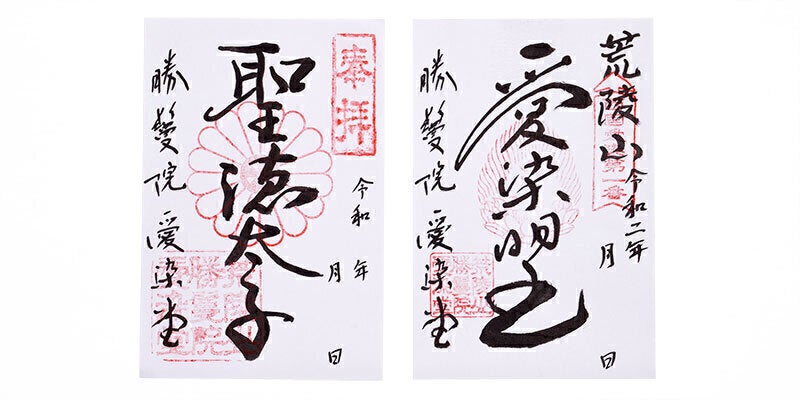 奉拝
聖徳太子
令和 年 月 日
勝鬘院愛染堂
荒陵山
令和二年 月 日
愛染明王
勝鬘院愛染堂